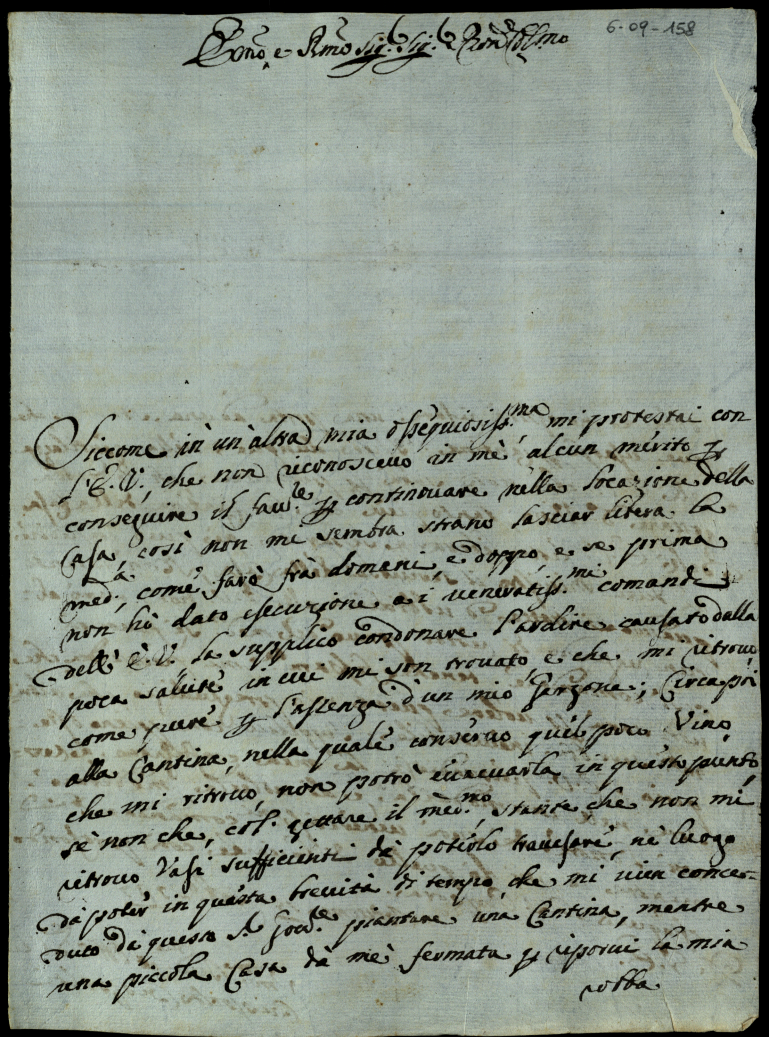 6-09-158
Emo, e Rmo Sig.r Sig.r e Pron Colmo
Siccome in un'altra mia ossequiosiss.ma mi protestai con
l'E.V., che non riconoscevo in mè alcun mèrito p
conseguire il fav.le p continovare nella locazione della
Casa, così non mi sembra strano lasciar libera la
med.a, come farò frà domeni, e doppo, e se prima
non hò dato esecuzione a i veneratiss.mi comandi
dell'E.V. la supplico condonare l'ardire causato dalla
poca salute in cui mi son trovato, e che mi ritrovo,
come pure p l'assenza d'un mio Garzone; Circa poi
alla Cantina, nella quale conservo quel poco Vino,
che mi ritrovo, non potrò evacuarla in questo punto,
sè non che, col gettare il med.mo, stante che non mi
ritrovo Vasi sufficienti dà poterlo travasare, nè luogo
dà poter in questa brevità di tempo, che mi vien conce-
duto dà questo S. Gov.re piantare una Cantina, mentre
una piccola Casa dà mè fermata p riporvi la mia
robba